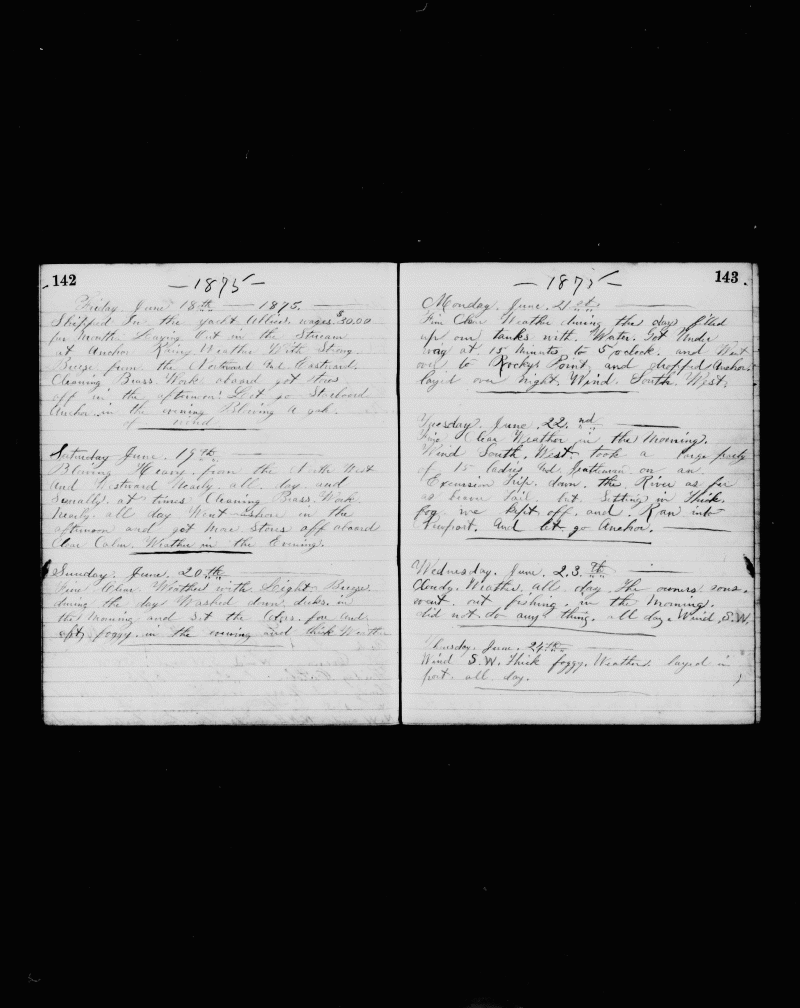 142
— 1875 —
Friday. June 18th — 1875. —
Shipped In the yacht wages $30.00
per Month. Laying Out in the Stream
at Anchor Rainy Weather With Strong
Breeze from the Northward and Eastward.
Cleaning Brass. Work aboard got Stores
off in the afternoon Let go Starboard
Anchor in the evening Blowing A gale
of wind
Saturday June. 19th.
Blowing Heavy from the North West
And Westward Nearly all day and
Squally. at times Cleaning Brass. Work
Nearly all day Went ashore in the
afternoon and got More Stores off aboard
Clear Calm. Weather in the Evening.
Sunday. June. 20th
Fine Clear Weather with Light Breeze.
during the day Washed down decks. in
the Morning and Set the Colors. for and
aft, foggy. in the evening and thick Weather
143
— 1875 —
Monday. June. 21st. —
Fine Clear Weather during the day filled
up our tanks with Water. Got Under
way at 15 Minutes to 5 o'clock. and Went
over to Rockys Point, and dropped Anchor.
layed over night. Wind. South. West.
Tuesday. June. 22. nd
Fine, Clear Weather in the Morning.
Wind South. West. took a large party
of 15 ladies and Gentlemen on an
Excursion Trip. down. the. River as far
as but Setting in Thick.
fog. we kept off. and. Ran into
Newport. And let. go Anchor. —
Wednesday. June. 23. Th —
Cloudy. Weather. all day. The owners sons.
went. out fishing. in the Morning.
did not. do any thing. all day. Wind. S.W.
Thursday. June. 24th. —
Wind S.W. Thick foggy. Weather. layed in
port. all day.